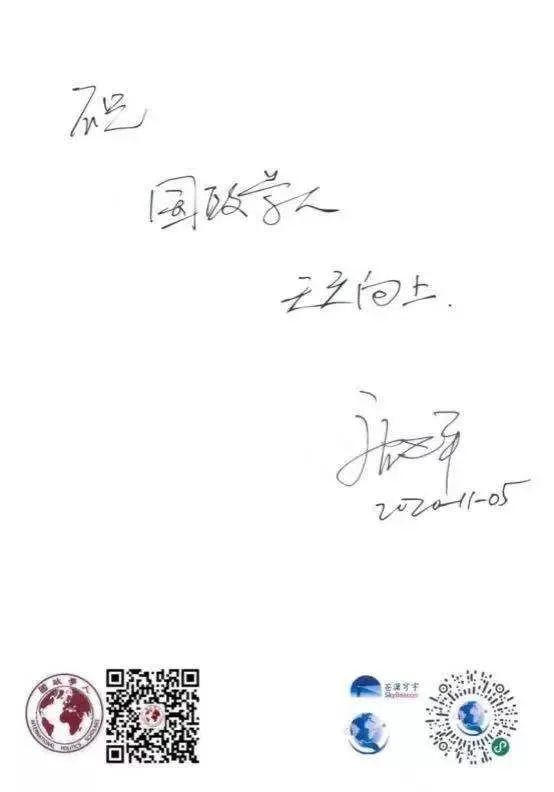 祝
国政学人
天天向上.
2020-11-05
國政學人
INTERNATIONAL POLITICS SCHOLARS
苍溟寰宇
SkyBeacon